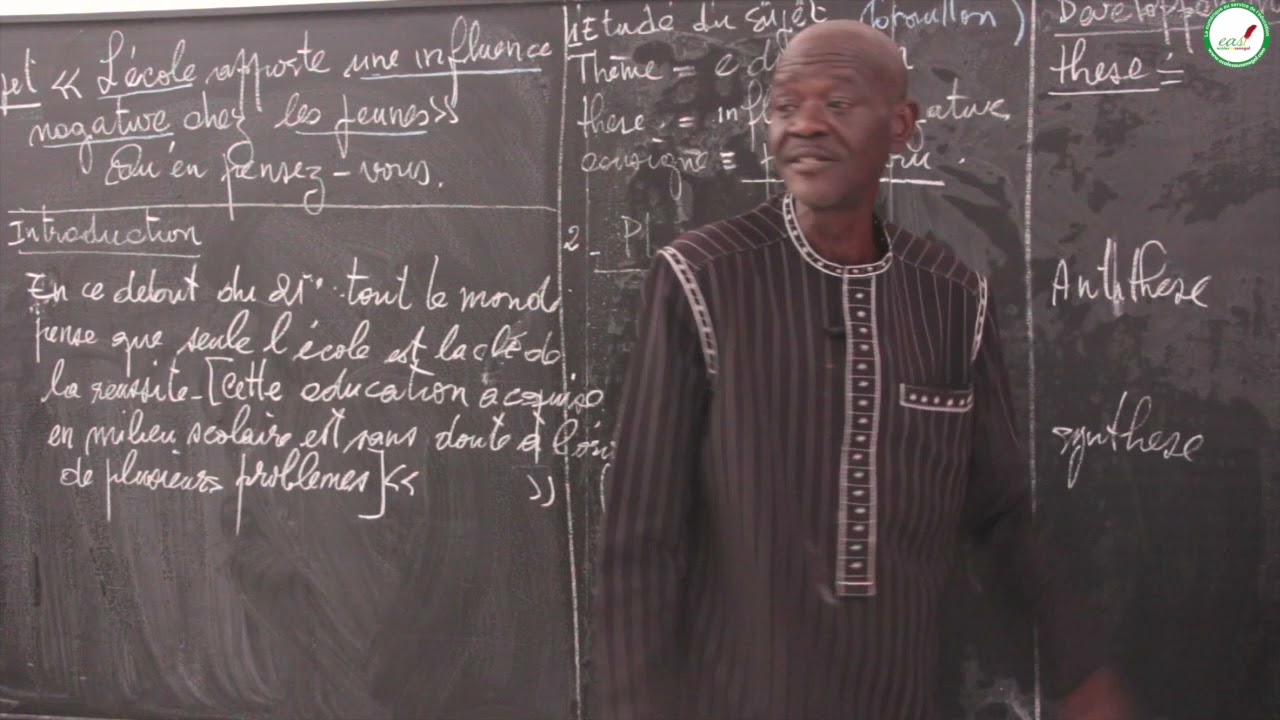 jet « L'école apporte une influence
négative chez les jeunes»
Qu'en pensez-vous.
Introduction
En ce debut du 21 tout le monde
pense que seule l'école est la clé de
la reussite_[Cette education acquise
en milieu scolaire est sans doute à l'ori
de plusieurs problemes]<< >>
1 Etude du sujet (brouillon)
Thème = e d n
these = infl gative
consigne =
2_ Pl
Developpem
these :
Antithese
synthese
eas
ecoles senegal
www.ecolesausenegal.com